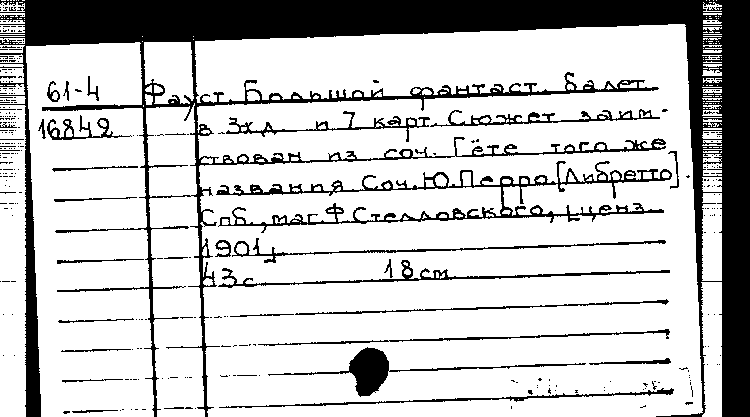 61-4 Фауст. Большой фантаст. балет
16842 в 3х д. и 7 карт. Сюжет заим-
ствован из соч. Гёте того же
названия Соч. Ю. Перро. [Либретто].
Спб., маг. Ф. Стелловского, [ценз.
1901]
43 с 18 см